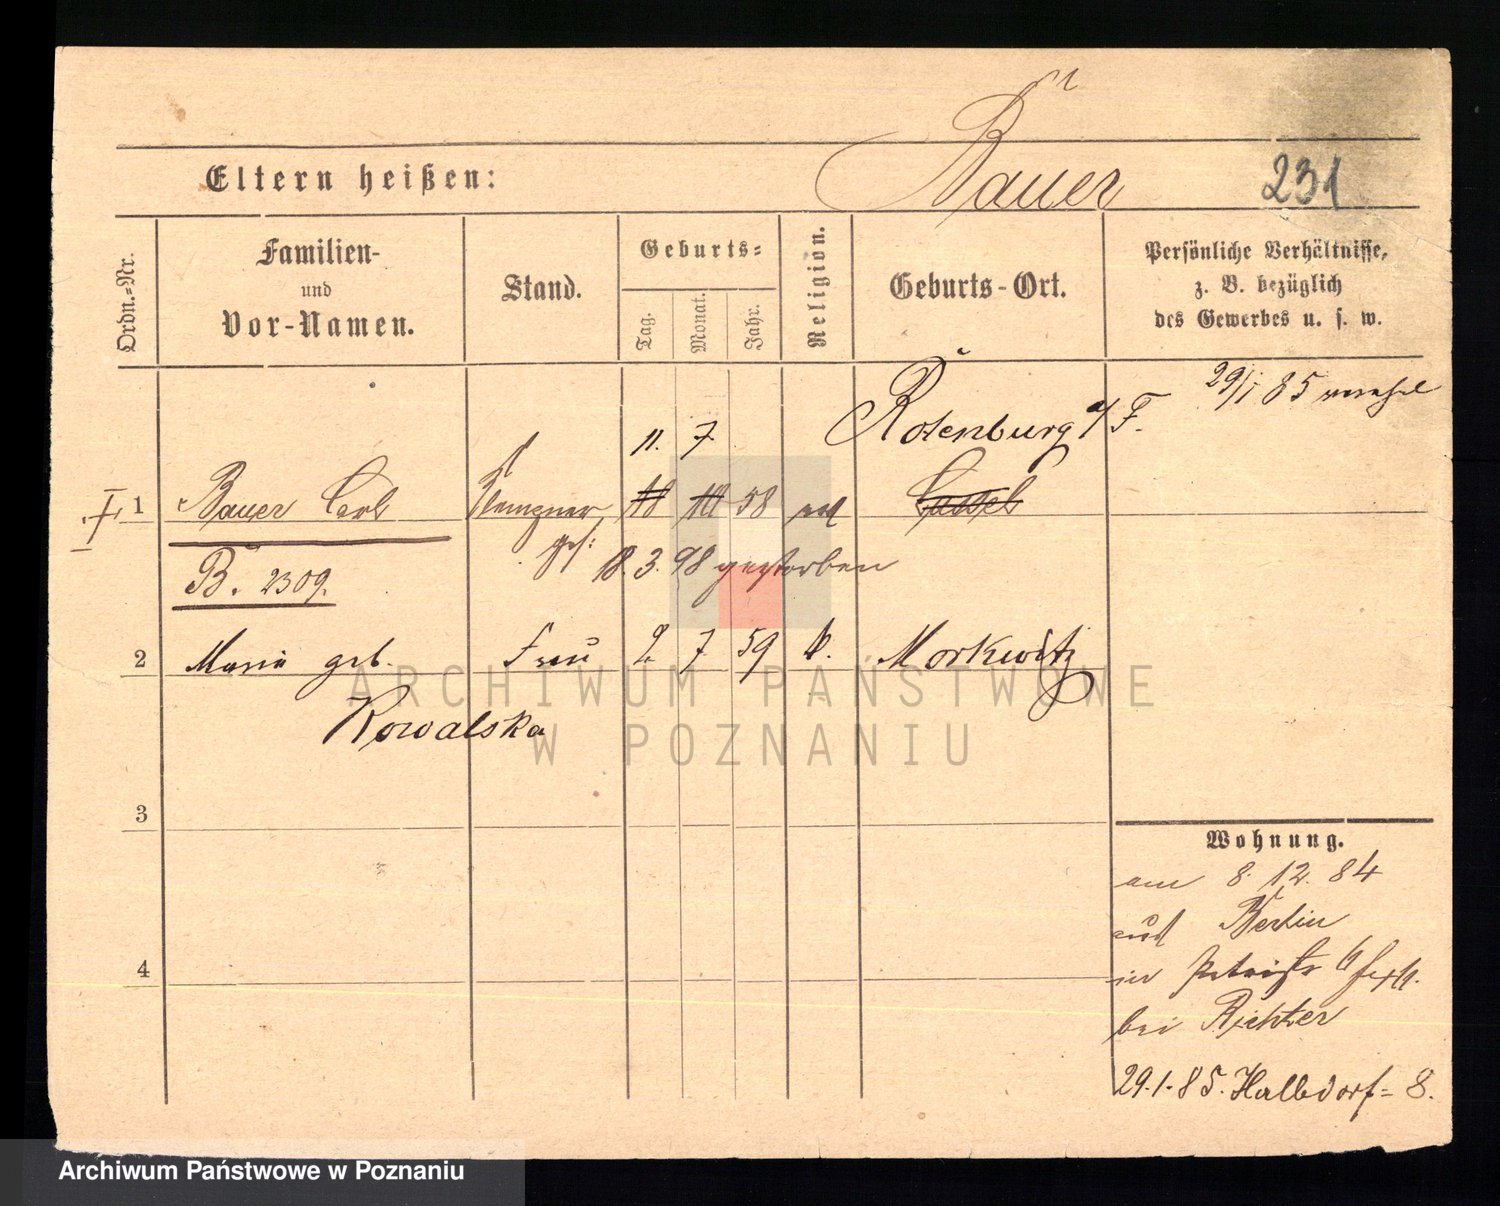 Bauer
231
Eltern heißen:
Ordn.-Nr.
Familien-
und
Vor-Namen.
Stand.
Geburts-
Tag.
Monat.
Jahr.
Religion.
Geburts-Ort.
Persönliche Verhältnisse,
z. B. bezüglich
des Gewerbes u. s. w.
29/1 85
11. 7. Rotenburg a/F.
I. 1 Bauer Carl Klempner 58 Cassel
ges:
B. 2309. 18. 3. 98 gestorben
2 Maria geb. Frau 2 7 59 k. Morkwitz
Kowalska
3
4
Wohnung.
am 8. 12. 84
aus Berlin
in
bei Richter
29.1.85. Halbdorf- 8.
ARCHIWUM PAŃSTWOWE
W POZNANIU
Archiwum Państwowe w Poznaniu